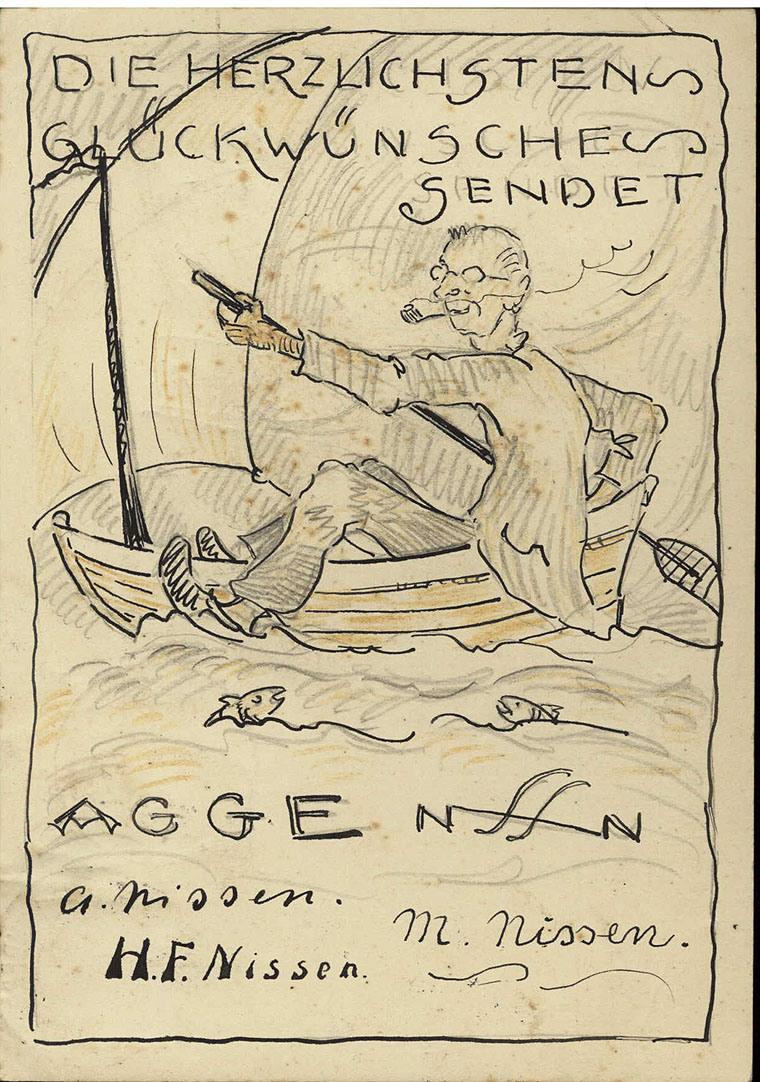 DIE HERZLICHSTEN
GLÜCKWÜNSCHE
SENDET
AGGE NSSN
a. nissen.
M. Nissen.
H.F. Nissen.